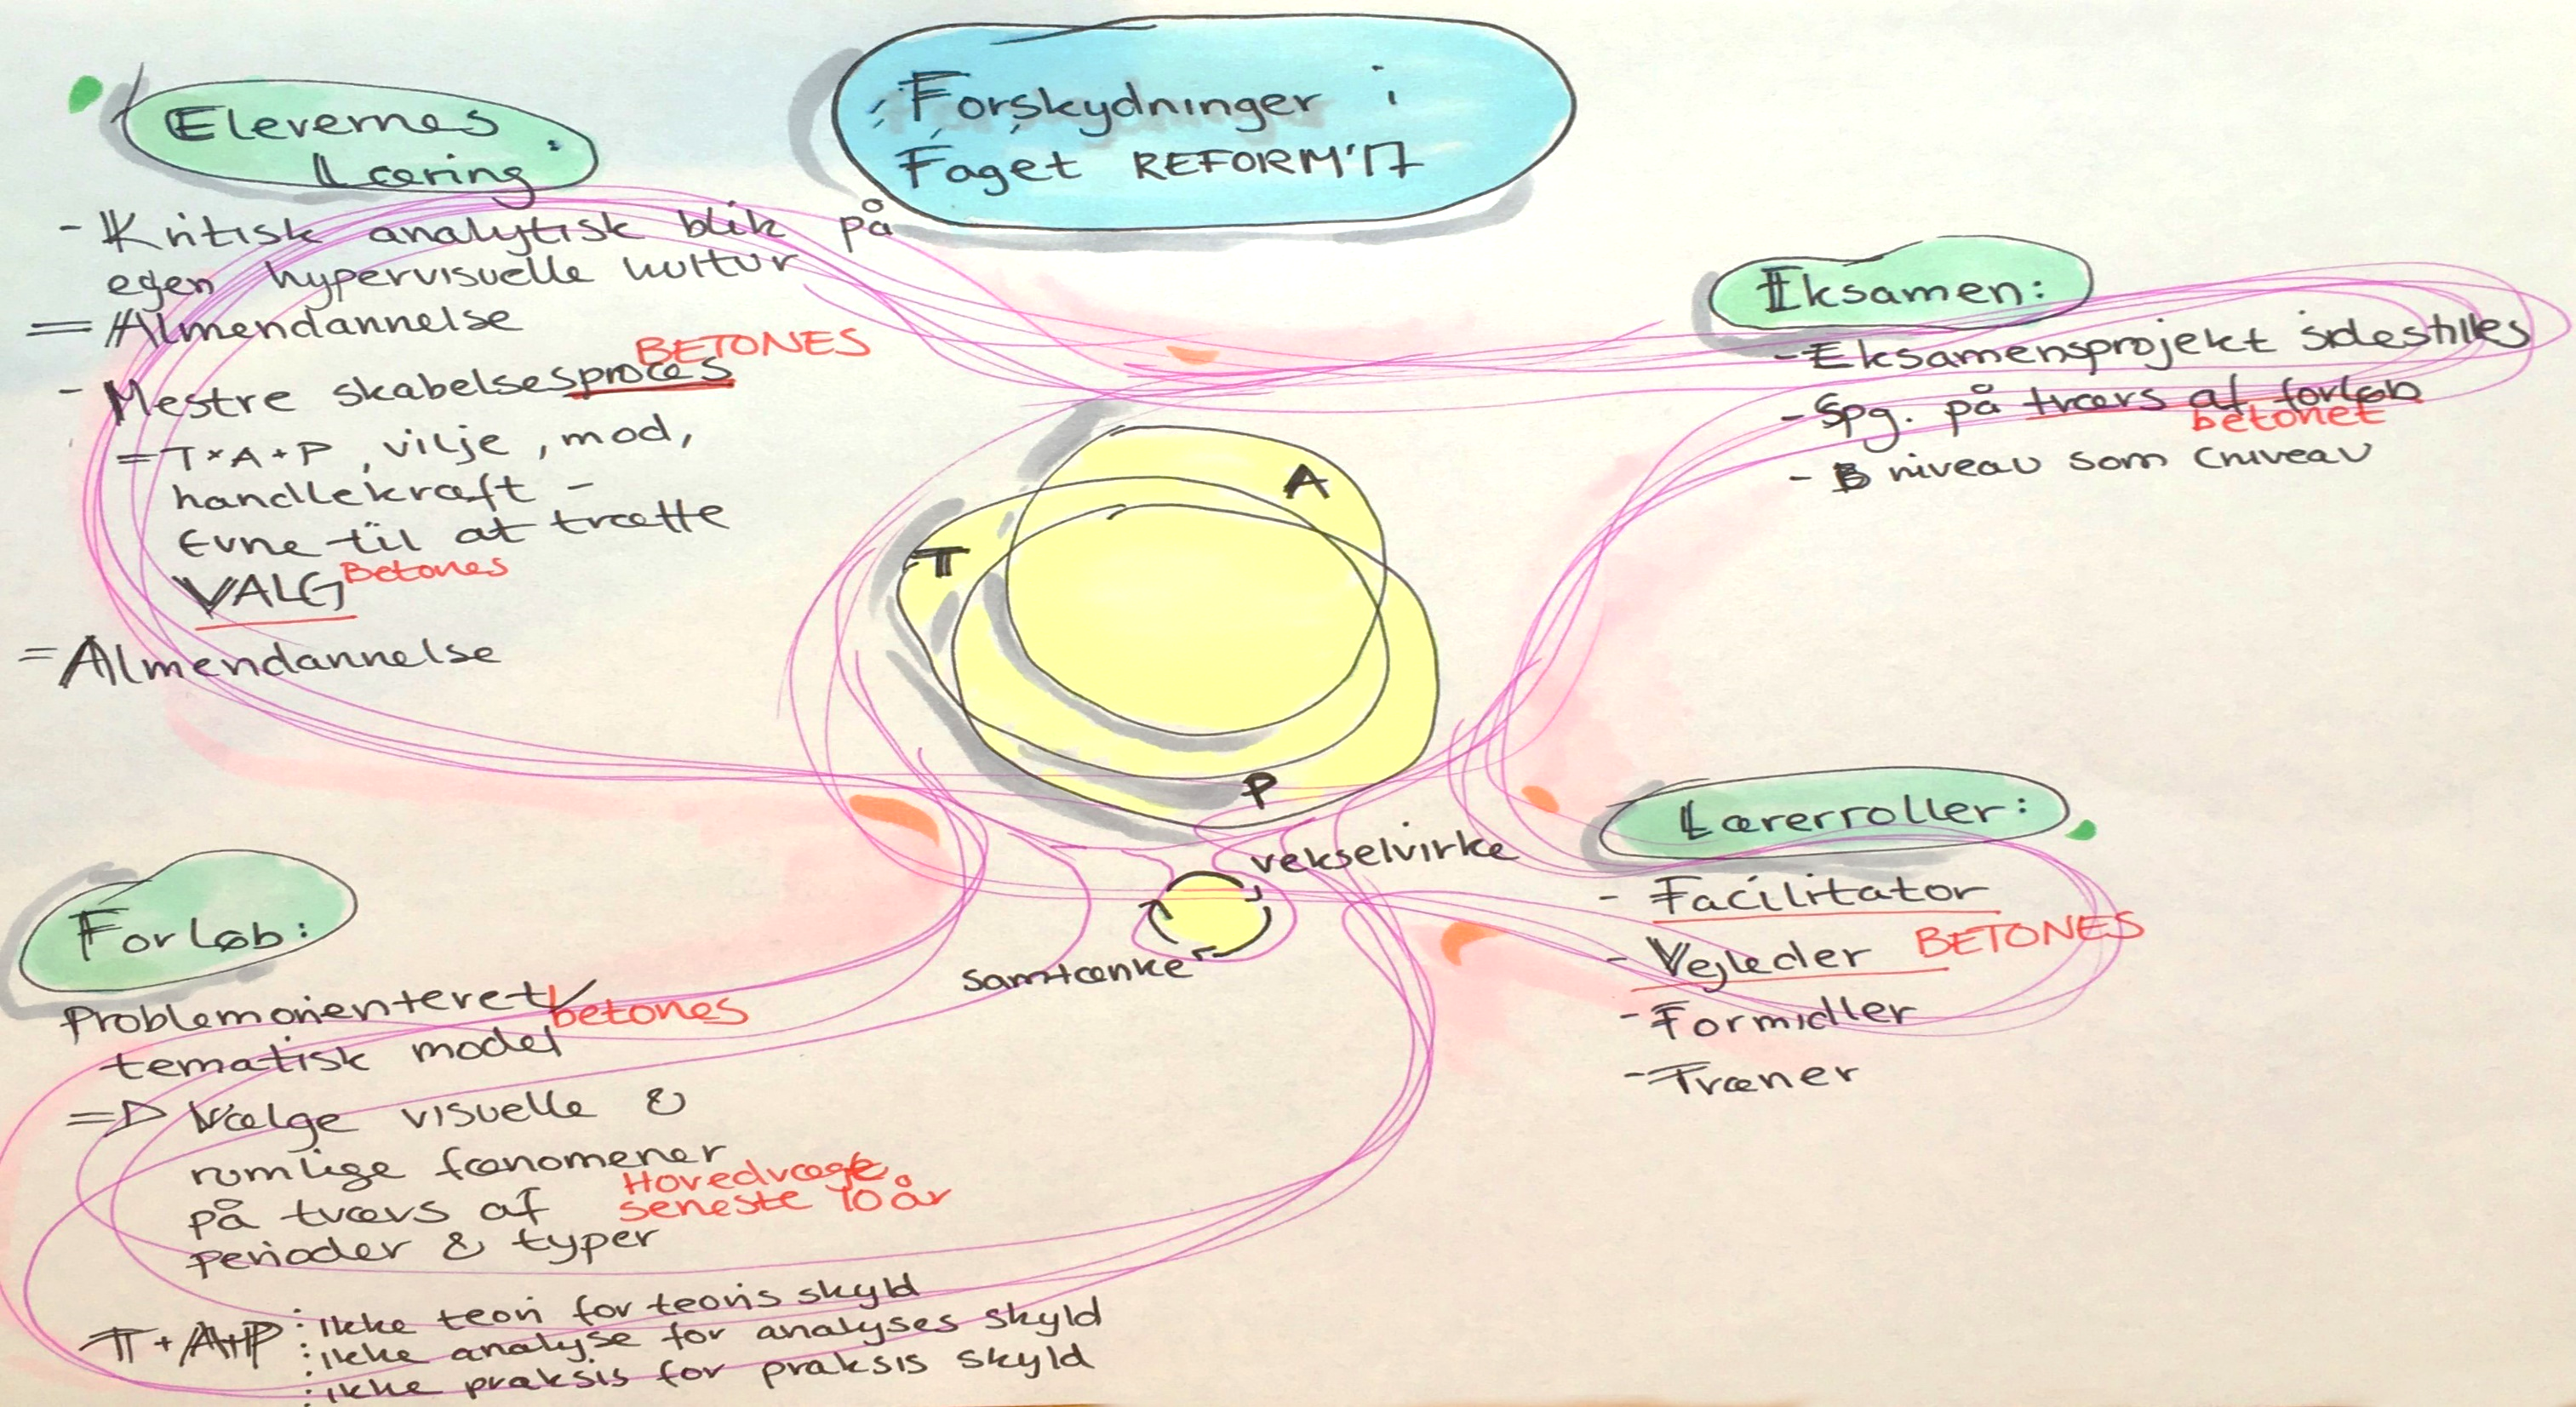 Forskydninger i
Faget REFORM'17
Elevernes
Læring:
- Kritisk analytisk blik på
egen hypervisuelle kultur
= Almendannelse
BETONES
- Mestre skabelsesproces
= T+A+P, vilje, mod,
handlekraft -
Evne til at træffe
VALG Betones
= Almendannelse
Eksamen:
- Eksamensprojekt sidestilles
- Spg. på tværs af forløb
betonet
- B niveau som C niveau
A
T
P
vekselvirke
samtænke
Lærerroller:
- Facilitator
- Vejleder BETONES
- Formidler
- Træner
Forløb:
Problemorienteret/
betones
tematisk model
=> Vælge visuelle &
rumlige fænomener
på tværs af
perioder & typer
Hovedvægt
seneste 10 år
T+A+P : ikke teori for teoris skyld
: ikke analyse for analyses skyld
: ikke praksis for praksis skyld